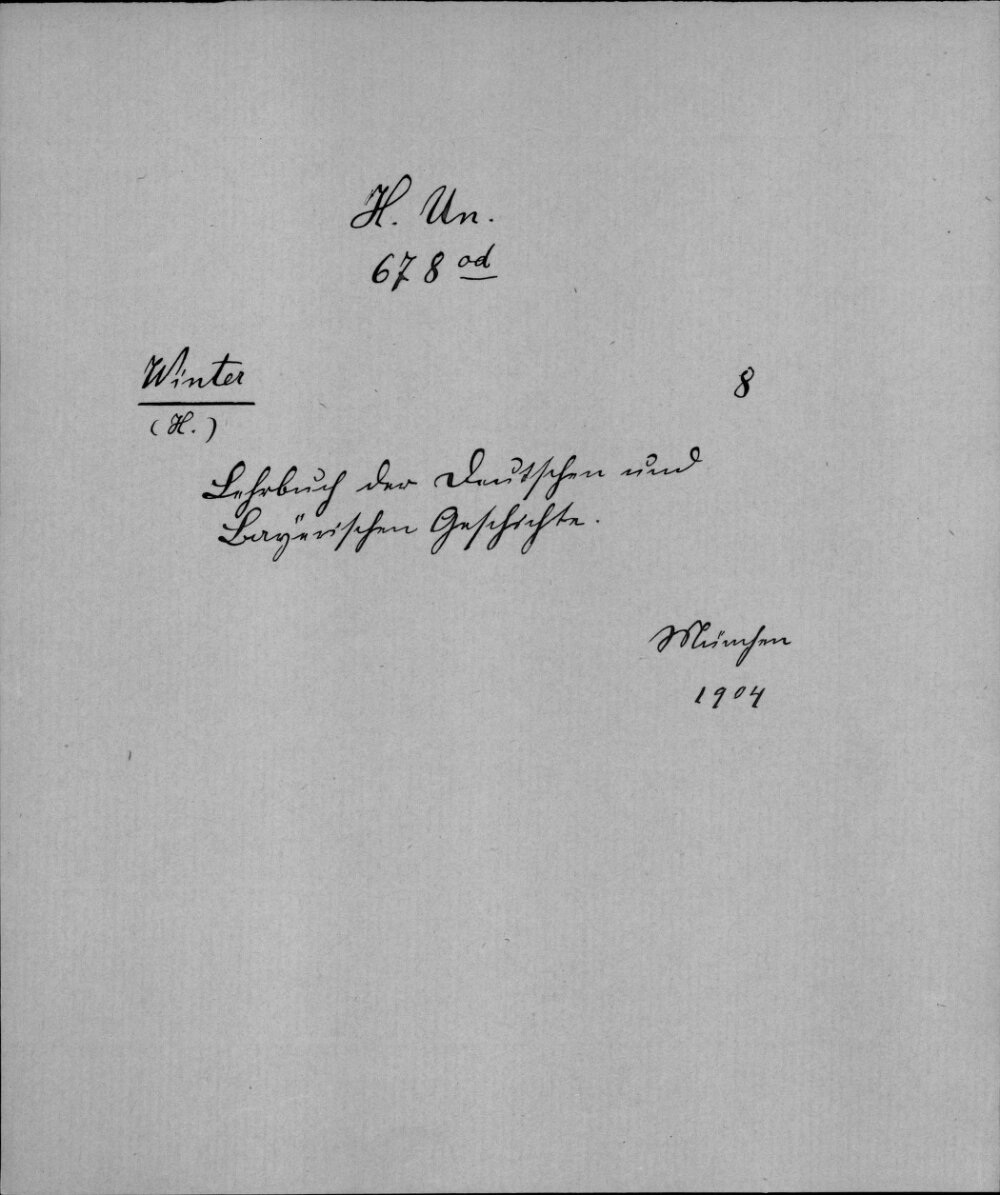 H. Un.
678 od
Winter 8
(H.)
Lehrbuch der Deutschen und
Bayerischen Geschichte.
München
1904